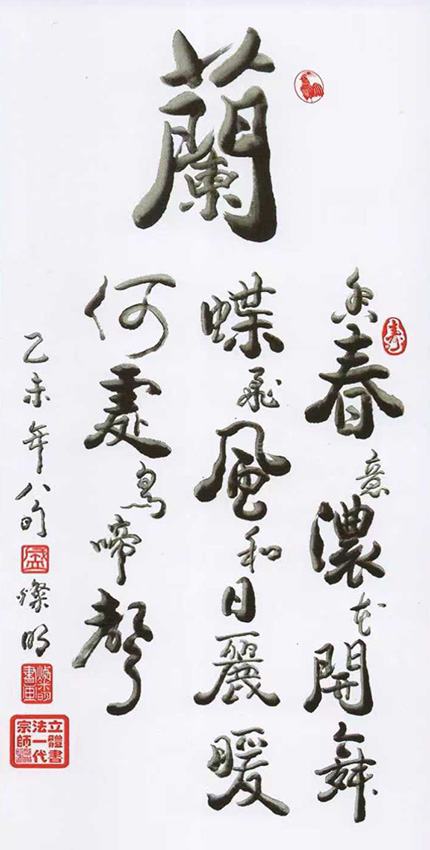 蘭
香春意濃花開舞
蝶飛風和日麗暖
何處鳥啼聲
乙未年八旬
盛
燦明
燦明書画
立體書
法一代
宗師